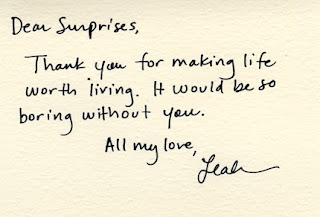 Dear Surprises,
Thank you for making life
worth living. It would be so
boring without you.
All my love,
Leah